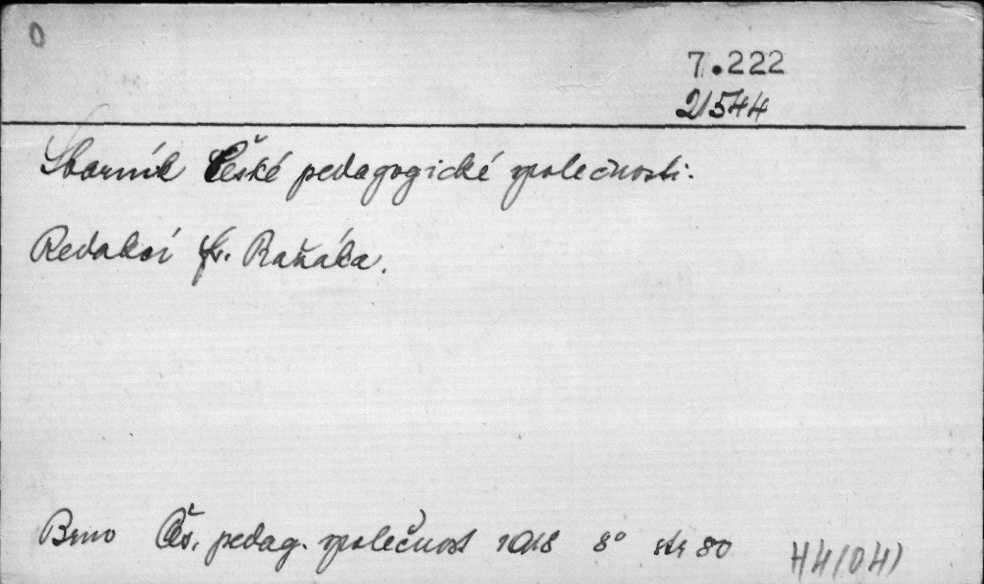 0
7.222
21544
Sborník České pedagogické společnosti.
Redakcí Fr. Ražáka.
Brno Čes. pedag. společnost 1918 8° str 80
H4(04)